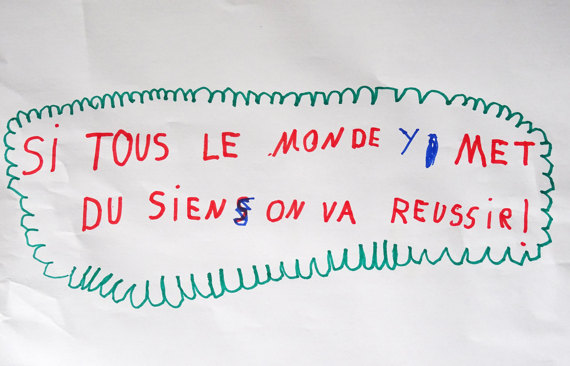 SI TOUS LE MONDE Y MET
DU SIEN ON VA REUSSIR!